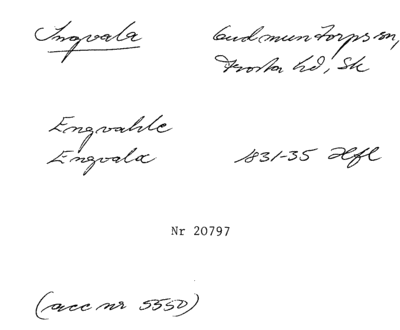 Ingvala Gudmuntorps sn,
Frosta hd, Sk
Engvahle
Engvala 1831-35 Hfl
Nr 20797
(acc nr 5550)